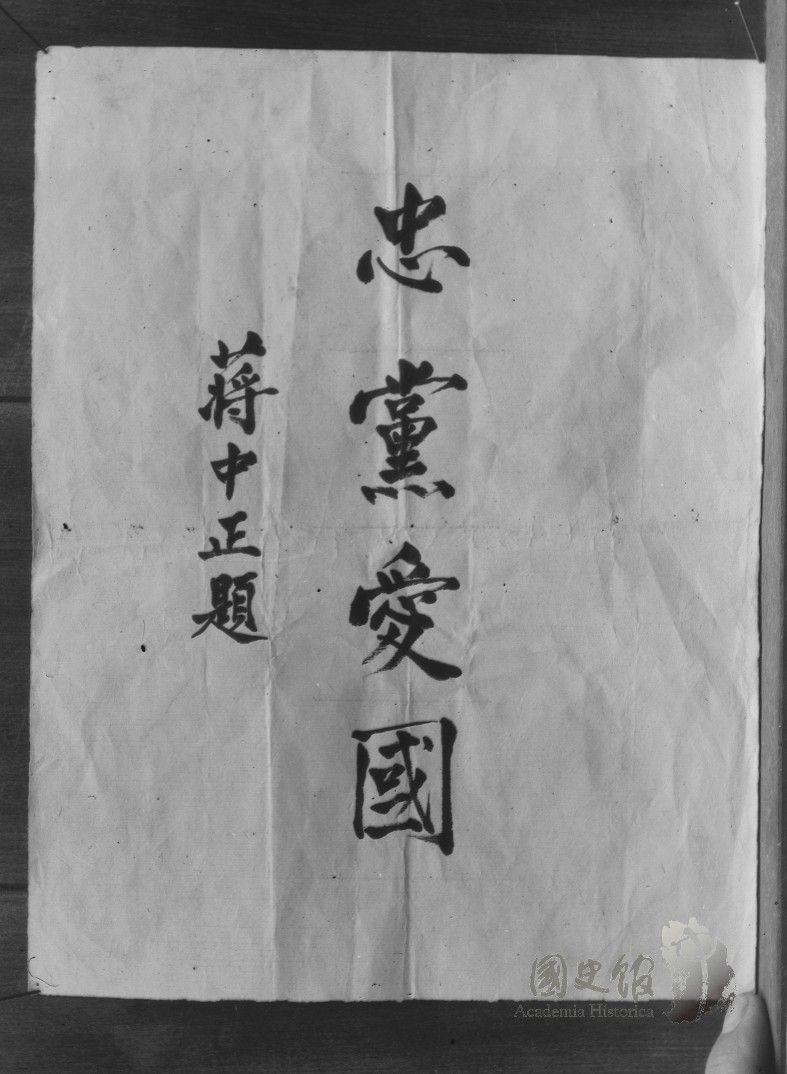 忠黨愛國
蔣中正題
國史館
Academia Historica